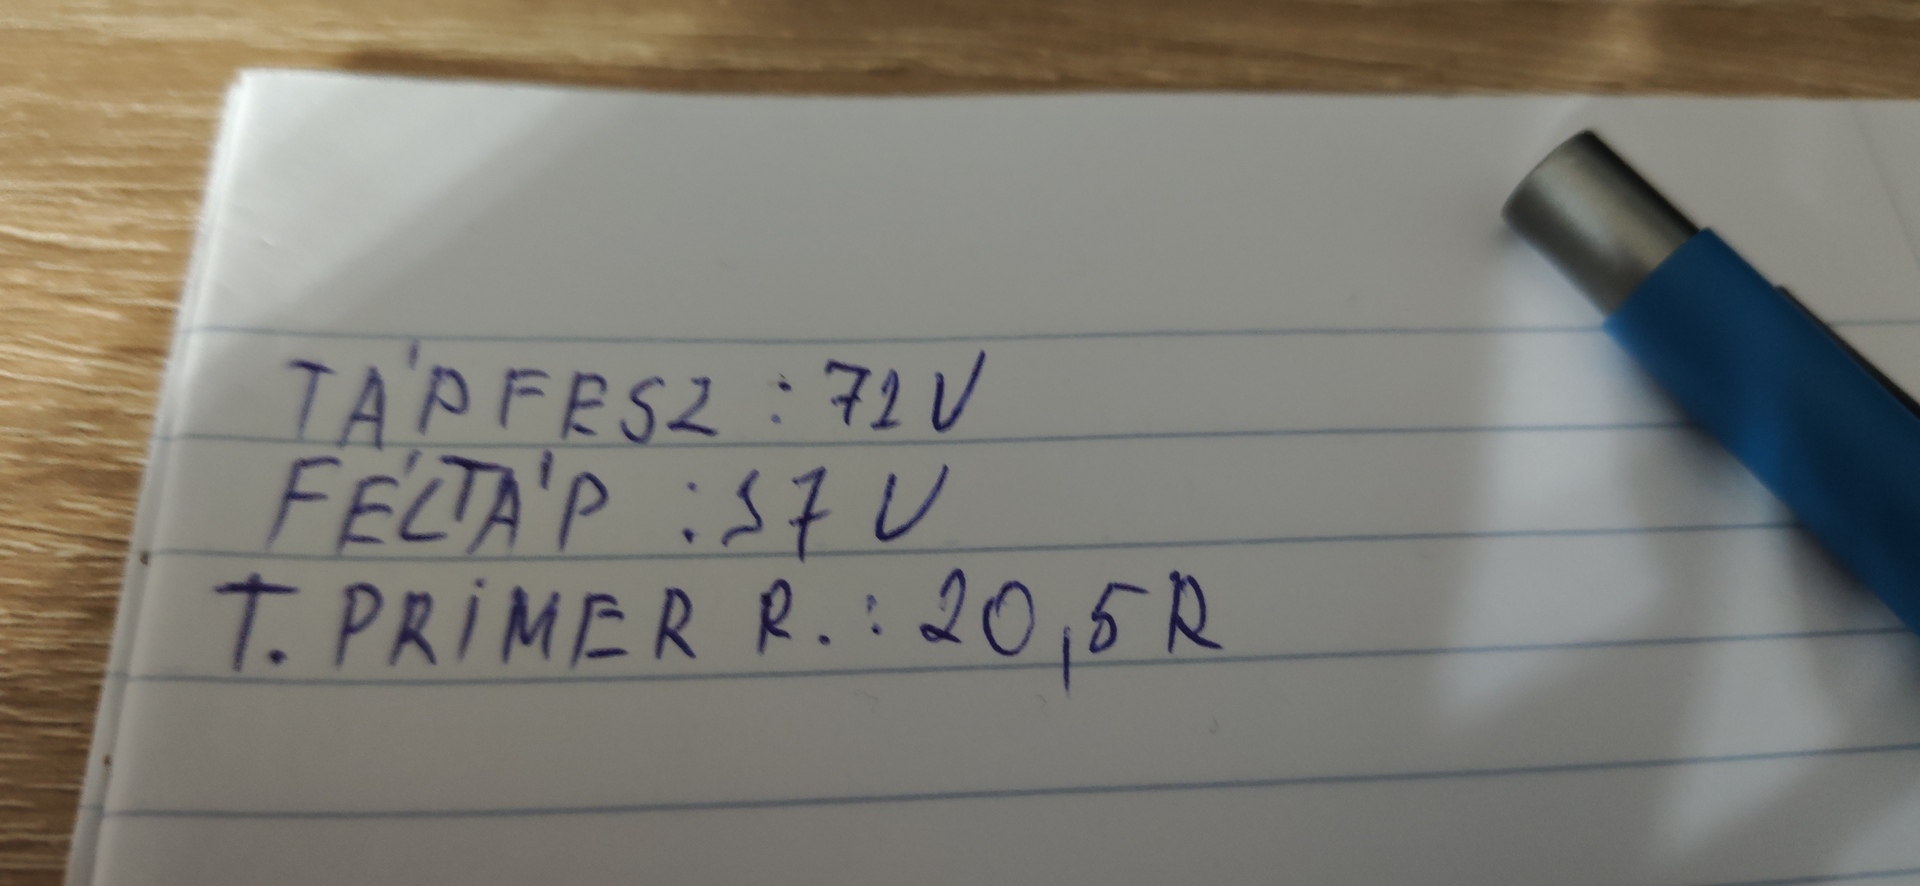 TÁPFESZ : 71V
FÉLTÁP : 37 V
T. PRIMER R. : 20,5R